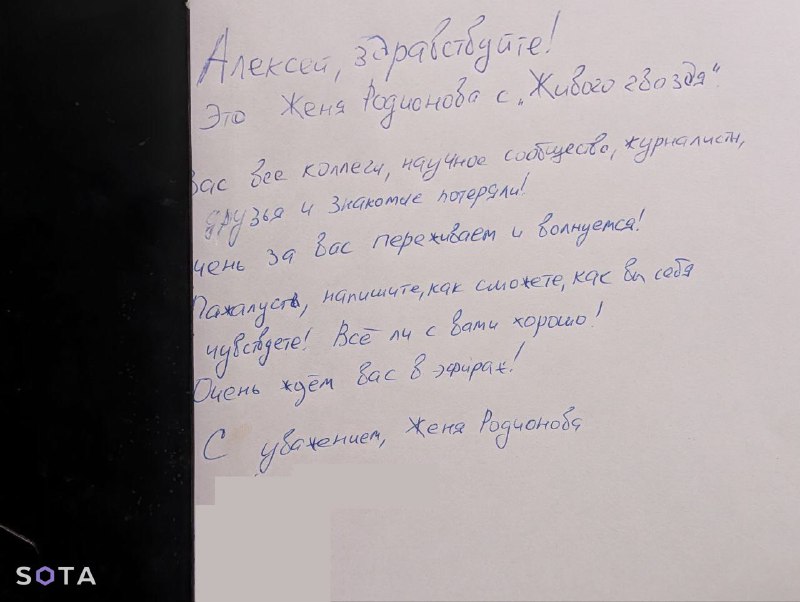 Алексей, здравствуйте!
Это Женя Родионова с „Живого гвоздя“.
Вас все коллеги, научное сообщество, журналисты,
друзья и знакомые потеряли!
чень за вас переживаем и волнуемся!
Пажалуста, напишите, как сможете, как вы себя
чувствуете! Всё ли с вами хорошо!
Очень ждём вас в эфирах!
С уважением, Женя Родионова
SOTA